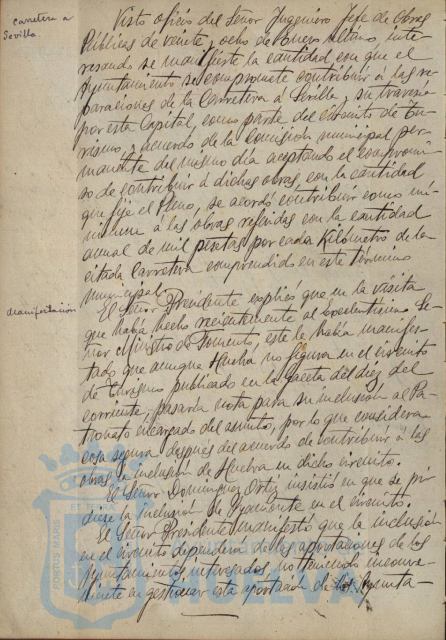 carretera a
Sevilla.
Visto oficio del Señor Ingeniero Jefe de Obras
Públicas de veinte y ocho de Enero último inte-
resando se manifieste la cantidad con que el
Ayuntamiento se compromete contribuir á las re-
paraciones de la Carretera á Sevilla, su travesia
por esta Capital, como parte del circuito de tu-
rismo, y acuerdo de la comisión municipal per-
manente del mismo día aceptando el compromi-
so de contribuir á dichas obras con la cantidad
que fije el Pleno, se acordó contribuir como mí-
nimum á las obras referidas con la cantidad
anual de mil pesetas por cada Kilómetro de la
citada Carretera comprendido en este término
municipal.
manifestación
El Señor Presidente explicó que en la visita
que había hecho recientemente al Excelentísimo Se-
ñor Ministro de Fomento, este le había manifes-
tado que aunque Huelva no figura en el circuito
de Turismo publicado en la Gaceta del diez del
corriente, pasaría nota para su inclusión al Pa-
tronato encargado del asunto, por lo que considera
cosa segura después del acuerdo de contribuir á las
obras, la inclusión de Huelva en dicho circuito.
El Señor Dominguez Ortiz insistió en que se pi-
diese la inclusión de Ayamonte en el circuito.
El Señor Presidente manifestó que la inclusión
en el circuito dependerá de las aportaciones de los
Ayuntamientos interesados, no teniendo inconve-
niente en gestionar esta aportación de los Ayunta-
PORTUS MARIS
HUELVA